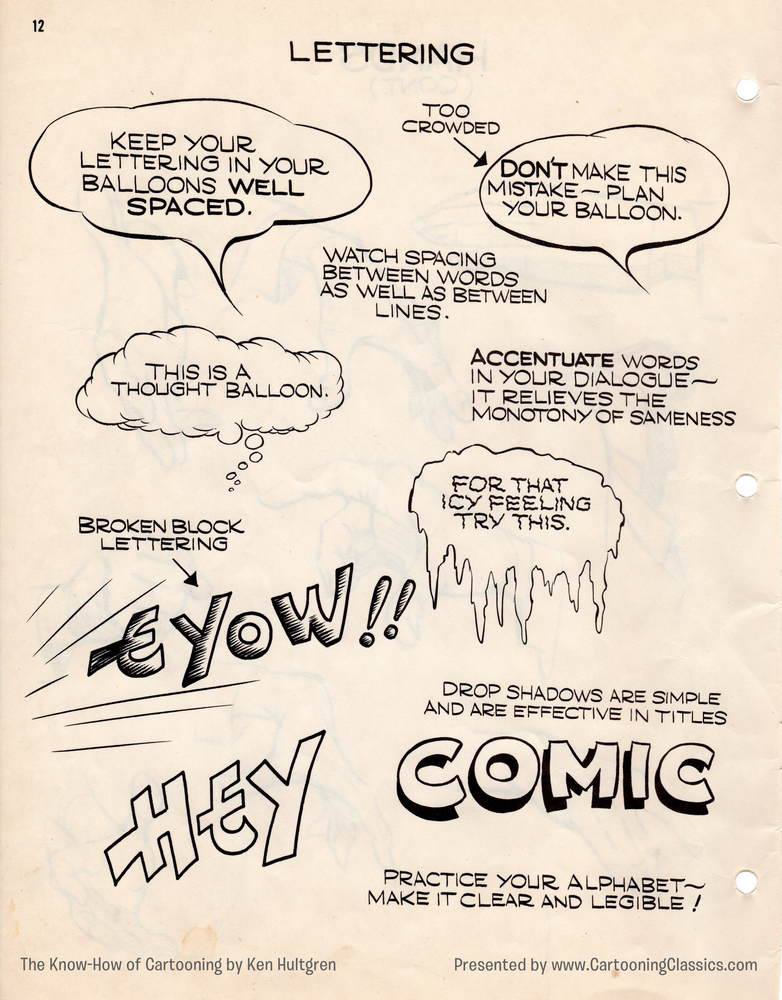 12
LETTERING
KEEP YOUR
LETTERING IN YOUR
BALLOONS WELL
SPACED.
TOO
CROWDED
DON'T MAKE THIS
MISTAKE~ PLAN
YOUR BALLOON.
WATCH SPACING
BETWEEN WORDS
AS WELL AS BETWEEN
LINES.
THIS IS A
THOUGHT BALLOON.
ACCENTUATE WORDS
IN YOUR DIALOGUE~
IT RELIEVES THE
MONOTONY OF SAMENESS
FOR THAT
ICY FEELING
TRY THIS.
BROKEN BLOCK
LETTERING
EYOW!!
DROP SHADOWS ARE SIMPLE
AND ARE EFFECTIVE IN TITLES
COMIC
HEY
PRACTICE YOUR ALPHABET~
MAKE IT CLEAR AND LEGIBLE!
The Know-How of Cartooning by Ken Hultgren
Presented by www.CartooningClassics.com